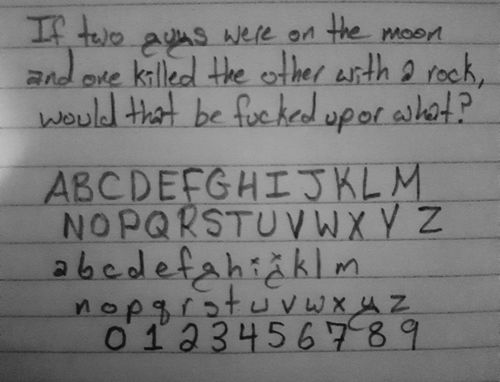 If two guys were on the moon
and one killed the other with a rock,
would that be fucked up or what?
ABCDEFGHIJKLM
NOPQRSTUVWXYZ
abcdefghijklm
nopqrstuvwxyz
0123456789